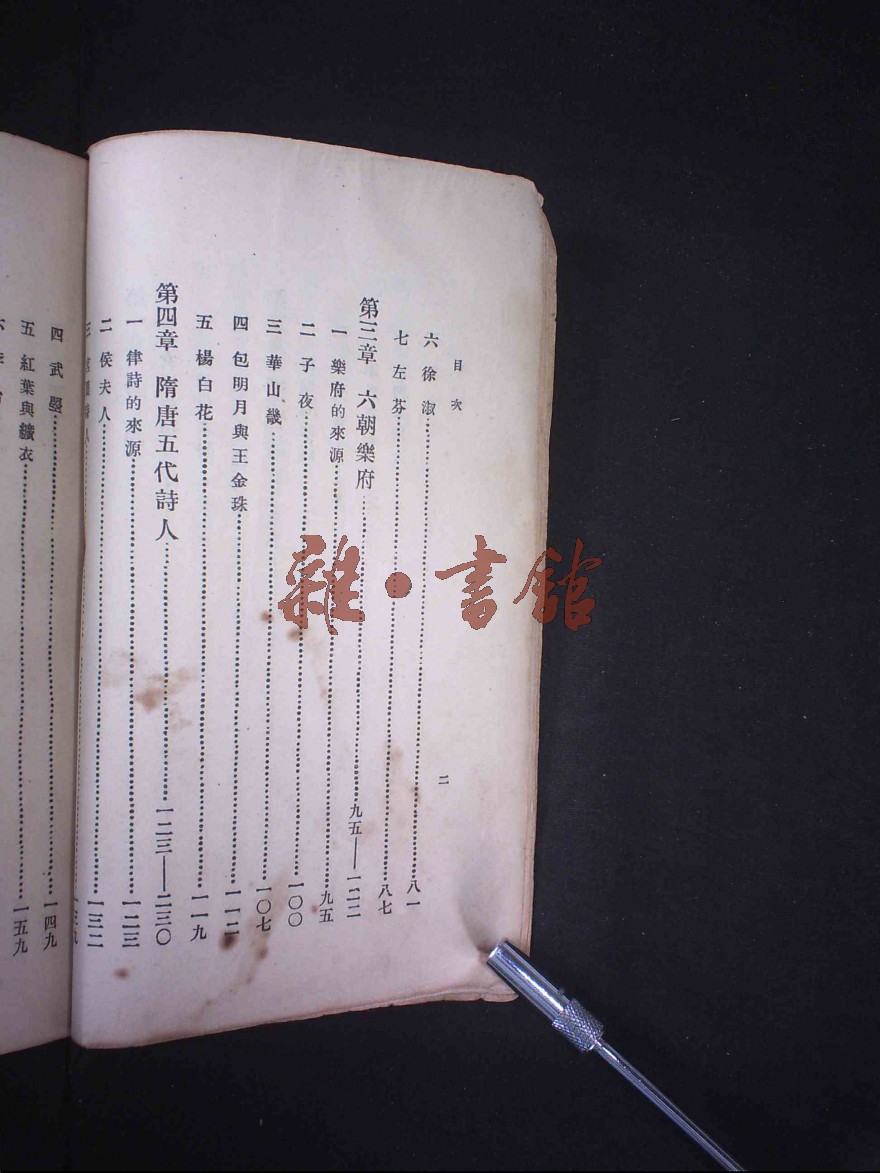 目次
二
六 徐淑 八一
七 左芬 八七
第三章 六朝樂府 九五——一二二
一 樂府的來源 九五
二 子夜 一〇〇
三 華山畿 一〇七
四 包明月與王金珠 一一二
五 楊白花 一一九
第四章 隋唐五代詩人 一二三——二三〇
一 律詩的來源 一二三
二 侯夫人 一三二
三 詩人 一三九
四 武曌 一四九
五 紅葉與纖衣 一五九
六
雜·書館